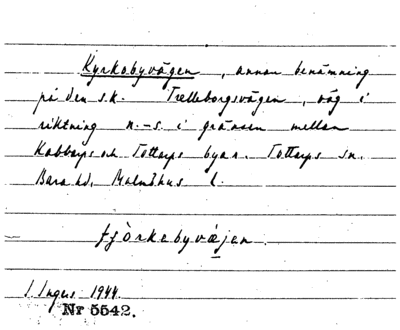 Kyrkobyvägen, annan benämning
på den s.k. Trelleborgsvägen, väg i
riktning n.-s. i gränsen mellan
Kabbarps och Tottarps byar. Tottarps sn.
Bara hd, Malmöhus l.
fjȯrkebyvæjen.
I. Ingers 1944.
Nr 5542.